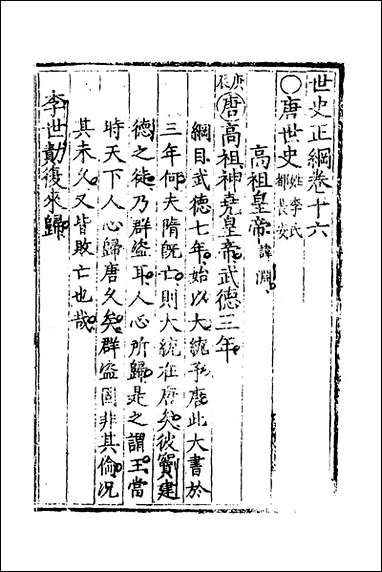 世史正綱卷十六
○唐世史姓李氏都長安
高祖皇帝諱淵
庚辰唐高祖神堯皇帝武德三年
綱目武德七年始以大統予唐此大書於
三年何夫隋旣亡則大統在唐矣彼竇建
德之徒乃群盜耳人心所歸是之謂王當
時天下人心歸唐久矣群盜固非其倫况
其未久又皆敗亡也哉
李世勣復來歸